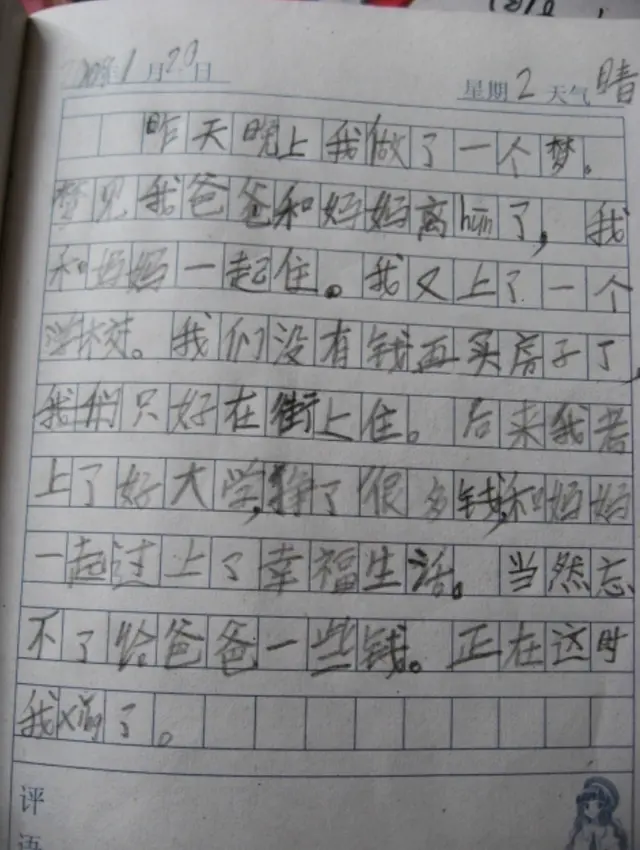 1月20日 星期2天气晴
昨天晚上我做了一个梦。
梦见我爸爸和妈妈离hūn了，我
和妈妈一起住。我又上了一个
学校。我们没有钱再买房子了，
我们只好在街上住。后来我考
上了好大学，挣了很多钱，和妈妈
一起过上了幸福生活。当然忘
不了给爸爸一些钱。正在这时
我xǐng了。
评
语